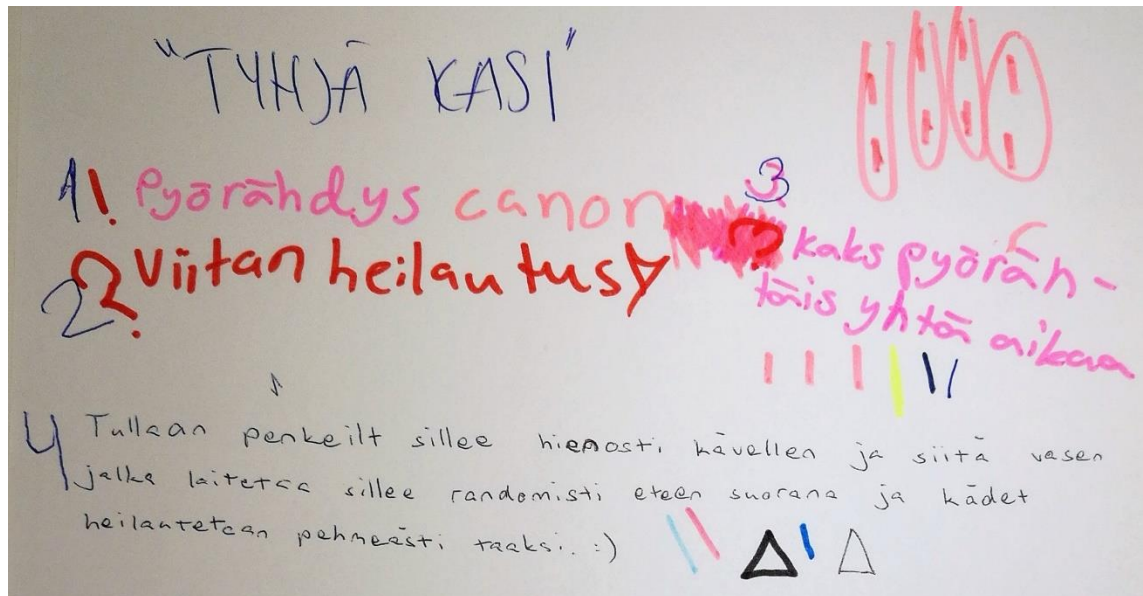 "TYHJÄ KASI"
1! Pyörähdys canon
2? Viitan heilautusy
3? kaks pyöräh-
töis yhtä aikaa
4 Tullaan penkeilt sillee hienosti kävellen ja siitä vasen
jalka laitetaa sillee randomisti eteen suorana ja kädet
heilautetaan pehmeästi taaksi. :)